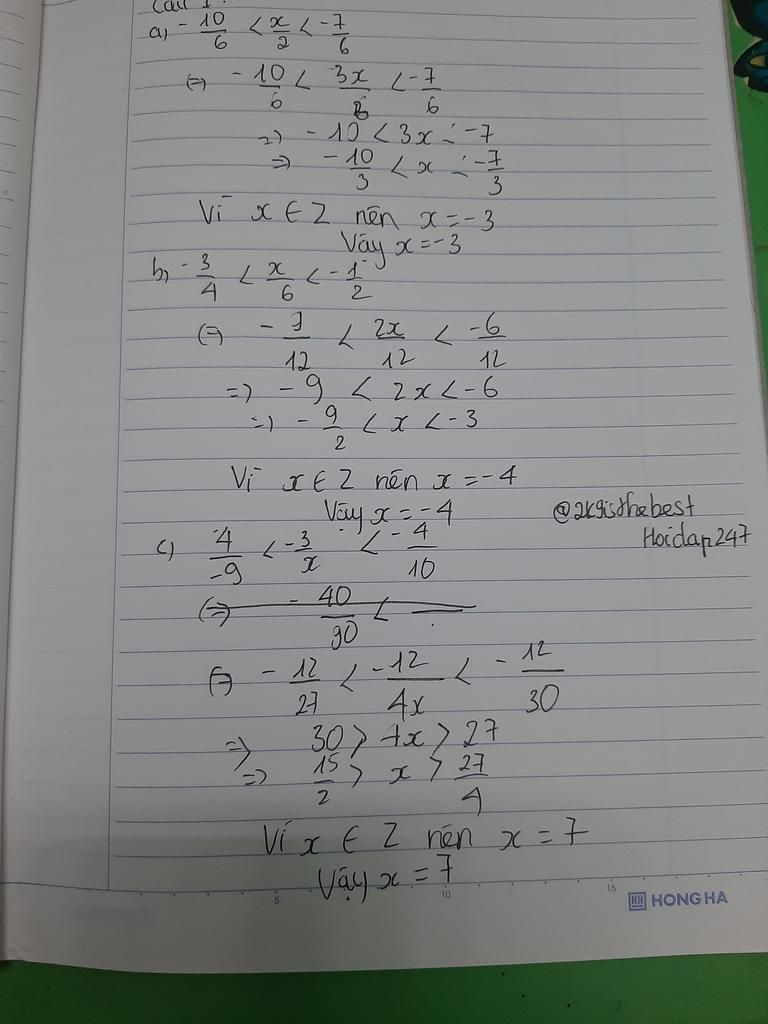 Câu 1:
a, -10/6 < x/2 < -7/6
(=) -10/6 < 3x/6 < -7/6
=) -10 < 3x < -7
=> -10/3 < x < -7/3
Vì x ∈ Z nên x = -3
Vậy x = -3
b, -3/4 < x/6 < -1/2
(=) -9/12 < 2x/12 < -6/12
=) -9 < 2x < -6
=) -9/2 < x < -3
Vì x ∈ Z nên x = -4
Vậy x = -4
@2k9isthebest
Hoidap247
c, 4/-9 < -3/x < -4/10
(=> -40/90 <
(=) -12/27 < -12/4x < -12/30
=> 30 > 4x > 27
=> 15/2 > x > 27/4
Vì x ∈ Z nên x = 7
Vậy x = 7
5 10 15
HONG HA